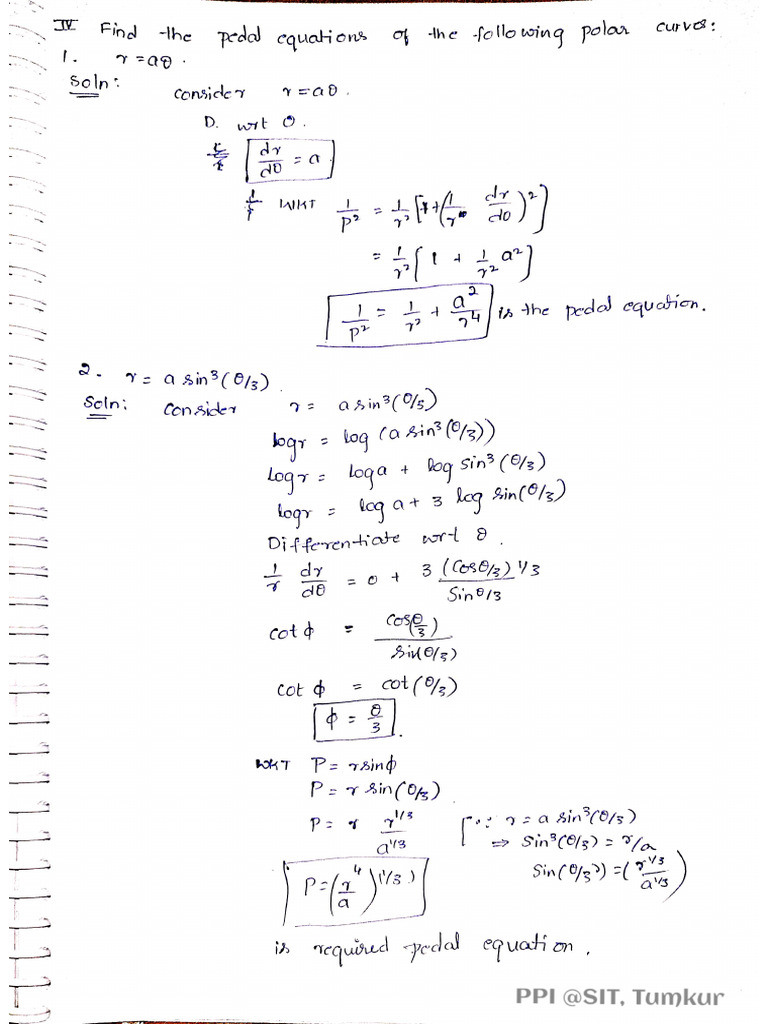 IV Find the pedal equations of the following polar curves:
1. r = aθ.
Soln: consider r = aθ.
D. wrt θ.
dr/dθ = a
WKT 1/p² = 1/r² [1 + (1/r dr/dθ)²]
= 1/r² [1 + 1/r² a²]
1/p² = 1/r² + a²/r⁴ is the pedal equation.
2. r = a sin³(θ/3).
Soln: Consider r = a sin³(θ/3)
logr = log (a sin³(θ/3))
logr = loga + log sin³(θ/3)
logr = log a + 3 log sin(θ/3)
Differentiate wrt θ.
1/r dr/dθ = 0 + 3 (cosθ/3) 1/3 / Sinθ/3
cot φ = cos(θ/3) / sin(θ/3)
cot φ = cot(θ/3)
φ = θ/3.
WKT P = rsinφ
P = r sin(θ/3)
P = r r^1/3 / a^1/3 [∵ r = a sin³(θ/3)
⇒ sin³(θ/3) = r/a
Sin(θ/3) = (r^1/3 / a^1/3)
P = (r⁴/a)^(1/3)
is required pedal equation.
PPI @SIT, Tumkur